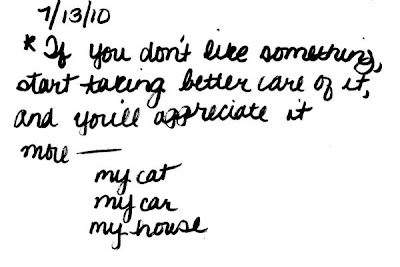 7/13/10
* If you don't like something,
start taking better care of it,
and you'll appreciate it
more —
my cat
my car
my house